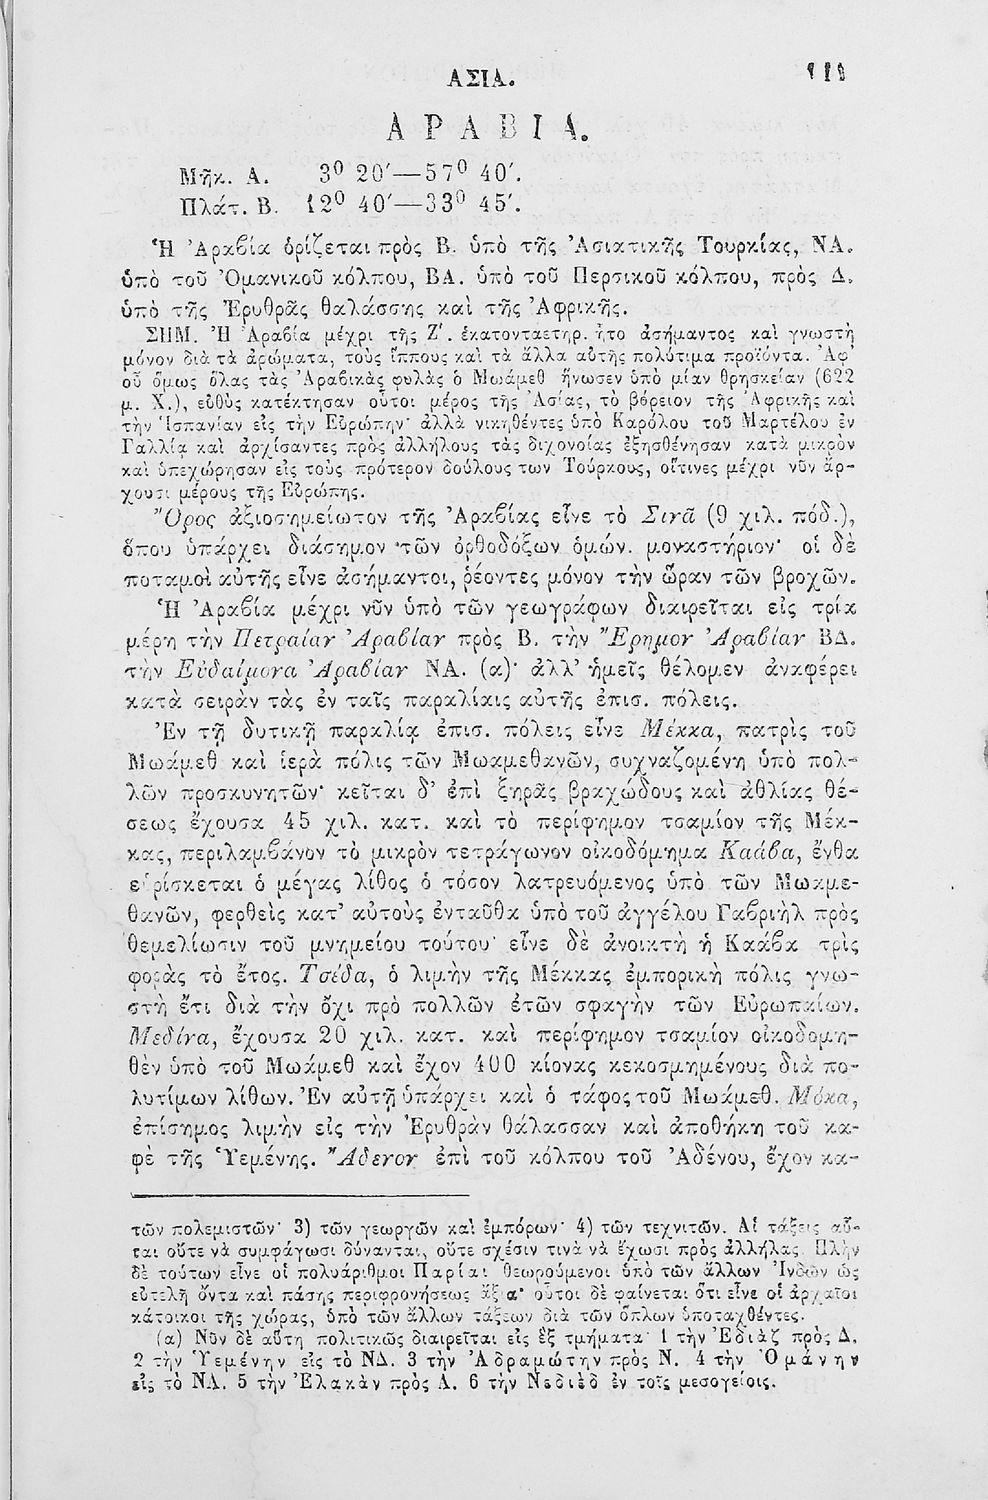 ΑΣΙΑ. 111
ΑΡΑΒΙΑ.
Μῆκ. Α. 3⁰ 20′—57⁰ 40′.
Πλάτ. Β. 12⁰ 40′—33⁰ 45′.
Ἡ Ἀραβία ὁρίζεται πρὸς Β. ὑπὸ τῆς Ἀσιατικῆς Τουρκίας, ΝΑ.
ὑπὸ τοῦ Ὀμανικοῦ κόλπου, ΒΑ. ὑπὸ τοῦ Περσικοῦ κόλπου, πρὸς Δ.
ὑπὸ τῆς Ἐρυθρᾶς θαλάσσης καὶ τῆς Ἀφρικῆς.
ΣΗΜ. Ἡ Ἀραβία μέχρι τῆς Ζʹ. ἑκατονταετηρ. ἦτο ἀσήμαντος καὶ γνωστὴ
μόνον διὰ τὰ ἀρώματα, τοὺς ἵππους καὶ τὰ ἄλλα αὐτῆς πολύτιμα προϊόντα. Ἀφ'
οὗ ὅμως ὅλας τὰς Ἀραβικὰς φυλὰς ὁ Μωάμεθ ἥνωσεν ὑπὸ μίαν θρησκείαν (622
μ. Χ.), εὐθὺς κατέκτησαν οὗτοι μέρος τῆς Ἀσίας, τὸ βόρειον τῆς Ἀφρικῆς καὶ
τὴν Ἱσπανίαν εἰς τὴν Εὐρώπην· ἀλλὰ νικηθέντες ὑπὸ Καρόλου τοῦ Μαρτέλου ἐν
Γαλλίᾳ καὶ ἀρχίσαντες πρὸς ἀλλήλους τὰς διχονοίας ἐξησθένησαν κατὰ μικρὸν
καὶ ὑπεχώρησαν εἰς τοὺς πρότερον δούλους των Τούρκους, οἵτινες μέχρι νῦν ἄρ-
χουσι μέρους τῆς Εὐρώπης.
Ὄρος ἀξιοσημείωτον τῆς Ἀραβίας εἶνε τὸ Σινᾶ (9 χιλ. πόδ.),
ὅπου ὑπάρχει διάσημον τῶν ὀρθοδόξων ἡμῶν. μοναστήριον· οἱ δὲ
ποταμοὶ αὐτῆς εἶνε ἀσήμαντοι, ῥέοντες μόνον τὴν ὥραν τῶν βροχῶν.
Ἡ Ἀραβία μέχρι νῦν ὑπὸ τῶν γεωγράφων διαιρεῖται εἰς τρία
μέρη τὴν Πετραίαν Ἀραβίαν πρὸς Β. τὴν Ἔρημον Ἀραβίαν ΒΔ.
τὴν Εὐδαίμονα Ἀραβίαν ΝΑ. (α)· ἀλλ' ἡμεῖς θέλομεν ἀναφέρει
κατὰ σειρὰν τὰς ἐν ταῖς παραλίαις αὐτῆς ἐπισ. πόλεις.
Ἐν τῇ δυτικῇ παραλίᾳ ἐπισ. πόλεις εἶνε Μέκκα, πατρὶς τοῦ
Μωάμεθ καὶ ἱερὰ πόλις τῶν Μωαμεθανῶν, συχναζομένη ὑπὸ πολ-
λῶν προσκυνητῶν· κεῖται δ' ἐπὶ ξηρᾶς βραχώδους καὶ ἀθλίας θέ-
σεως ἔχουσα 45 χιλ. κατ. καὶ τὸ περίφημον τσαμίον τῆς Μέκ-
κας, περιλαμβάνον τὸ μικρὸν τετράγωνον οἰκοδόμημα Καάβα, ἔνθα
εὑρίσκεται ὁ μέγας λίθος ὁ τόσον λατρευόμενος ὑπὸ τῶν Μωαμε-
θανῶν, φερθεὶς κατ' αὐτοὺς ἐνταῦθα ὑπὸ τοῦ ἀγγέλου Γαβριὴλ πρὸς
θεμελίωσιν τοῦ μνημείου τούτου· εἶνε δὲ ἀνοικτὴ ἡ Καάβα τρὶς
φορὰς τὸ ἔτος. Τσέδα, ὁ λιμὴν τῆς Μέκκας ἐμπορικὴ πόλις γνω-
στὴ ἔτι διὰ τὴν ὄχι πρὸ πολλῶν ἐτῶν σφαγὴν τῶν Εὐρωπαίων.
Μεδίνα, ἔχουσα 20 χιλ. κατ. καὶ περίφημον τσαμίον οἰκοδομη-
θὲν ὑπὸ τοῦ Μωάμεθ καὶ ἔχον 400 κίονας κεκοσμημένους διὰ πο-
λυτίμων λίθων. Ἐν αὐτῇ ὑπάρχει καὶ ὁ τάφος τοῦ Μωάμεθ. Μόκα,
ἐπίσημος λιμὴν εἰς τὴν Ἐρυθρὰν θάλασσαν καὶ ἀποθήκη τοῦ κα-
φὲ τῆς Ὑεμένης. Ἄδενον ἐπὶ τοῦ κόλπου τοῦ Ἀδένου, ἔχον κα-
τῶν πολεμιστῶν· 3) τῶν γεωργῶν καὶ ἐμπόρων· 4) τῶν τεχνιτῶν. Αἱ τάξεις αὗ-
ται οὔτε νὰ συμφάγωσι δύνανται, οὔτε σχέσιν τινὰ νὰ ἔχωσι πρὸς ἀλλήλας. Πλὴν
δὲ τούτων εἶνε οἱ πολυάριθμοι Παρίαι θεωρούμενοι ὑπὸ τῶν ἄλλων Ἰνδῶν ὡς
εὐτελῆ ὄντα καὶ πάσης περιφρονήσεως ἄξια· οὗτοι δὲ φαίνεται ὅτι εἶνε οἱ ἀρχαῖοι
κάτοικοι τῆς χώρας, ὑπὸ τῶν ἄλλων τάξεων διὰ τῶν ὅπλων ὑποταχθέντες.
(α) Νῦν δὲ αὕτη πολιτικῶς διαιρεῖται εἰς ἓξ τμήματα· 1 τὴν Ἐδιὰζ πρὸς Δ.
2 τὴν Ὑεμένην εἰς τὸ ΝΔ. 3 τὴν Ἀδραμώτην πρὸς Ν. 4 τὴν Ὀμάνην
εἰς τὸ ΝΑ. 5 τὴν Ἐλακὰν πρὸς Α. 6 τὴν Νεδιὲδ ἐν τοῖς μεσογείοις.